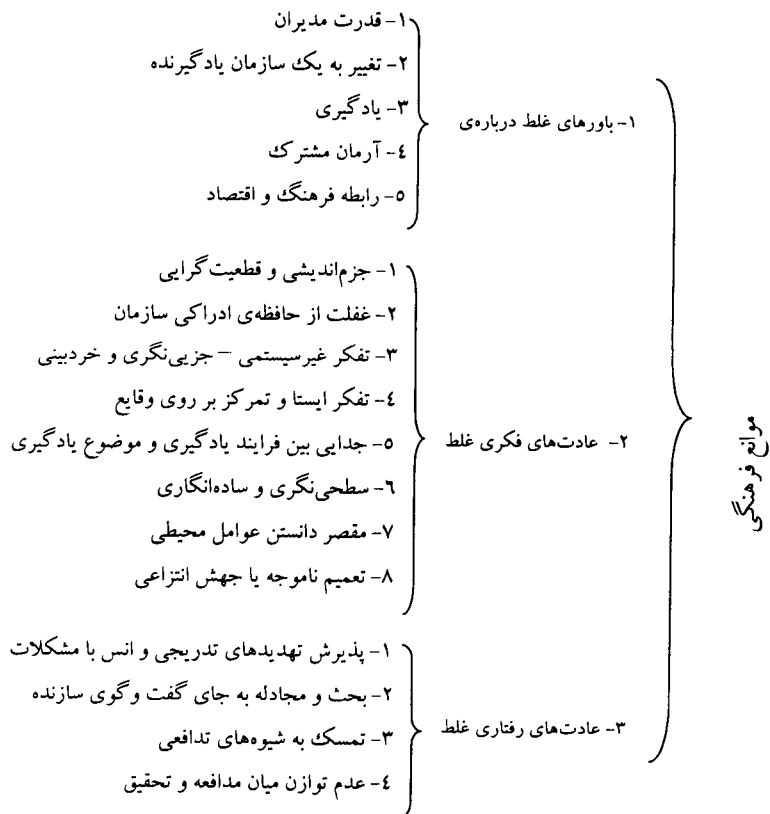 موانع فرهنگی
۱- باورهای غلط درباره‌ی
۱- قدرت مدیران
۲- تغییر به یک سازمان یادگیرنده
۳- یادگیری
٤- آرمان مشترک
٥- رابطه فرهنگ و اقتصاد
۲- عادت‌های فکری غلط
۱- جزم‌اندیشی و قطعیت‌گرایی
۲- غفلت از حافظه‌ی ادراکی سازمان
۳- تفکر غیرسیستمی – جزیی‌نگری و خردبینی
٤- تفکر ایستا و تمرکز بر روی وقایع
٥- جدایی بین فرایند یادگیری و موضوع یادگیری
٦- سطحی‌نگری و ساده‌انگاری
۷- مقصر دانستن عوامل محیطی
۸- تعمیم ناموجه یا جهش انتزاعی
۳- عادت‌های رفتاری غلط
۱- پذیرش تهدیدهای تدریجی و انس با مشکلات
۲- بحث و مجادله به جای گفت وگوی سازنده
۳- تمسک به شیوه‌های تدافعی
٤- عدم توازن میان مدافعه و تحقیق